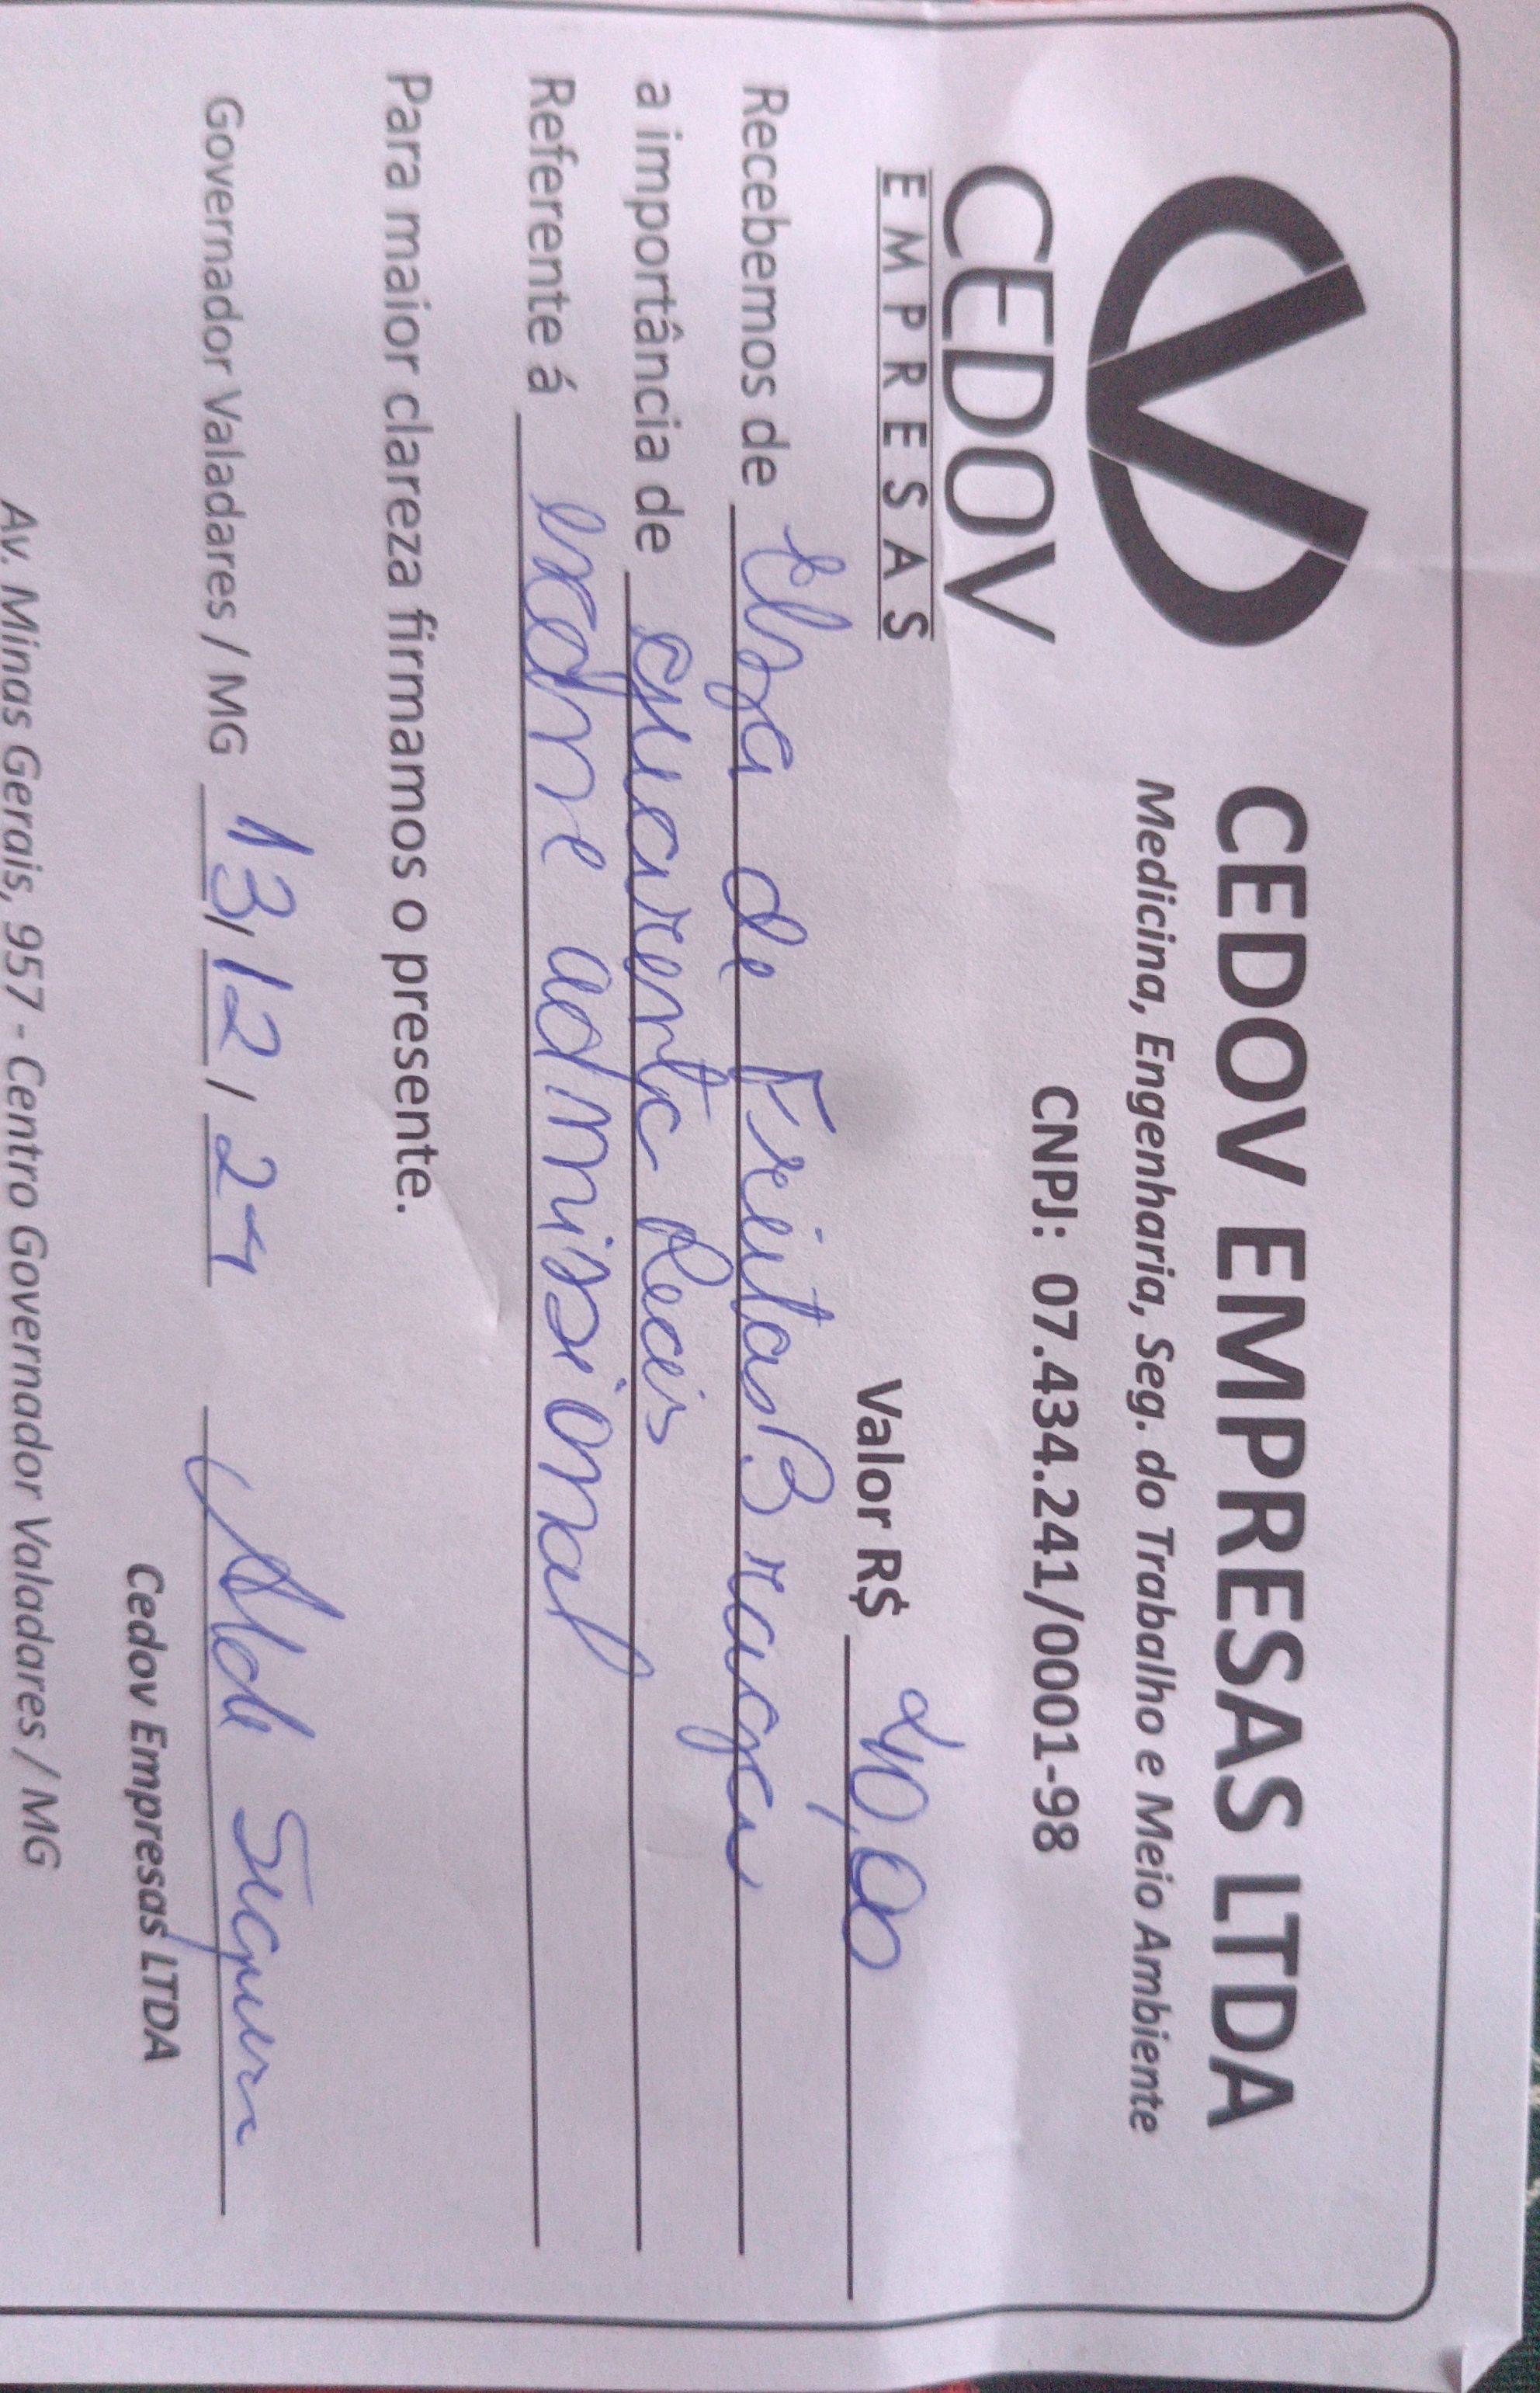 CEDOV
EMPRESAS
CEDOV EMPRESAS LTDA
Medicina, Engenharia, Seg. do Trabalho e Meio Ambiente
CNPJ: 07.434.241/0001-98
Valor R$ 40,00
Recebemos de Elza de Freitas Braga
a importância de quarenta Reais
Referente á exame admissional
Para maior clareza firmamos o presente.
Governador Valadares / MG 13 / 12 / 24
Cedov Empresas LTDA
Av. Minas Gerais, 957 - Centro Governador Valadares / MG